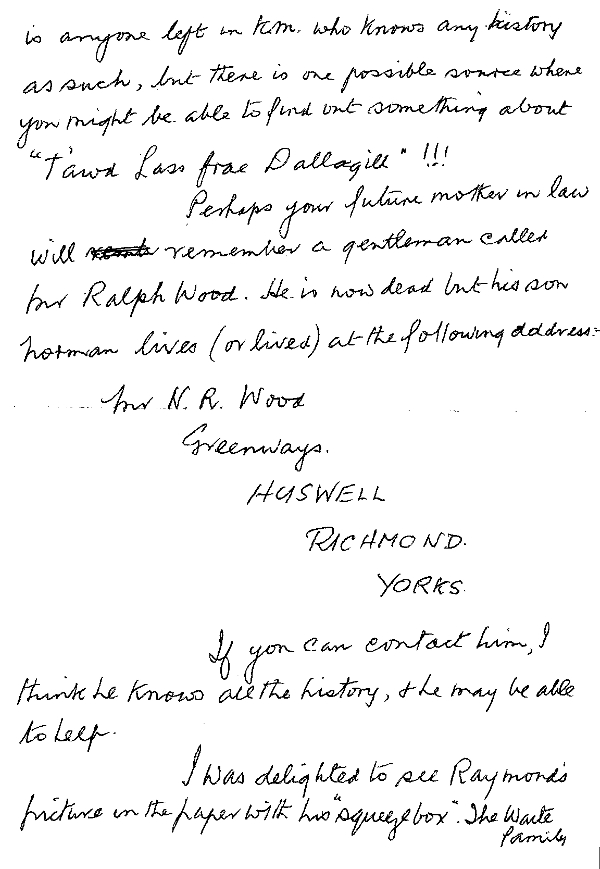 is anyone left in K.M. who knows any history
as such, but there is one possible source where
you might be able to find out something about
"T'awd Lass frae Dallagill" !!!
Perhaps your future mother in law
will remember a gentleman called
Mr Ralph Wood. He is now dead but his son
Norman lives (or lived) at the following address:-
Mr N. R. Wood
Greenways.
HUSWELL
RICHMOND.
YORKS.
If you can contact him, I
think he knows all the history, & he may be able
to help.
I was delighted to see Raymond's
picture in the paper with his "squeeze box". The Waite
Family